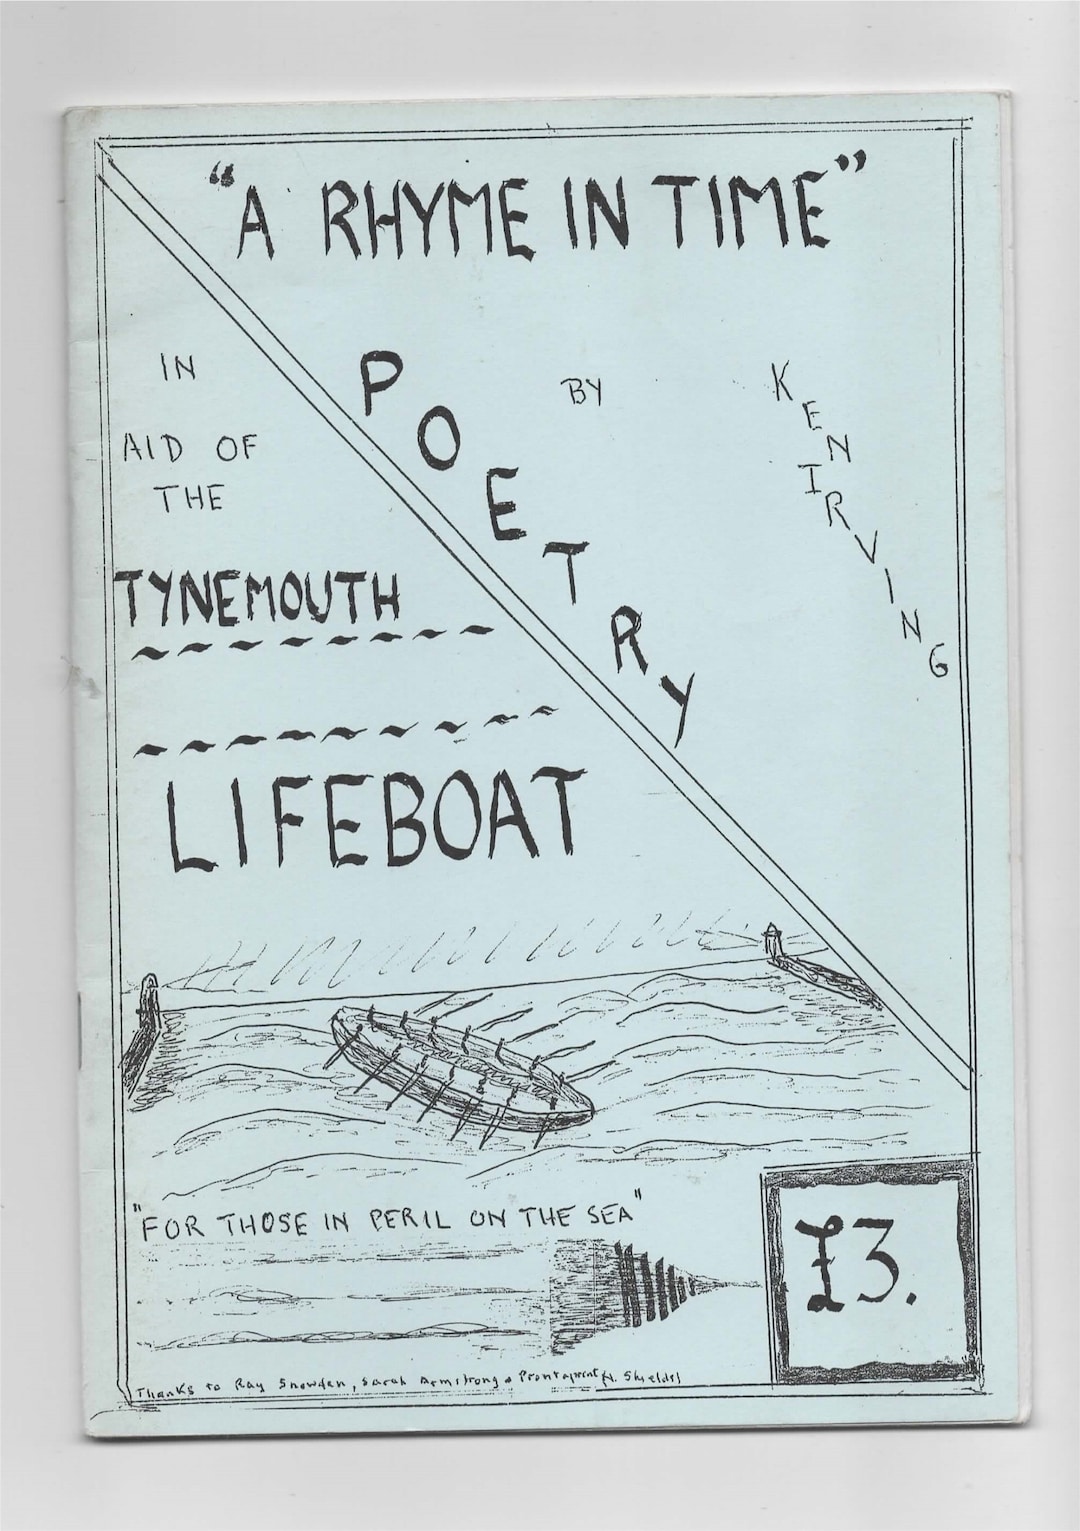 "A RHYME IN TIME"
IN
AID OF
THE
TYNEMOUTH
LIFEBOAT
POETRY
BY
KEN IRVING
"FOR THOSE IN PERIL ON THE SEA"
£3.
Thanks to Ray Snowden, Sarah Armstrong & Prontaprint (N. Shields)